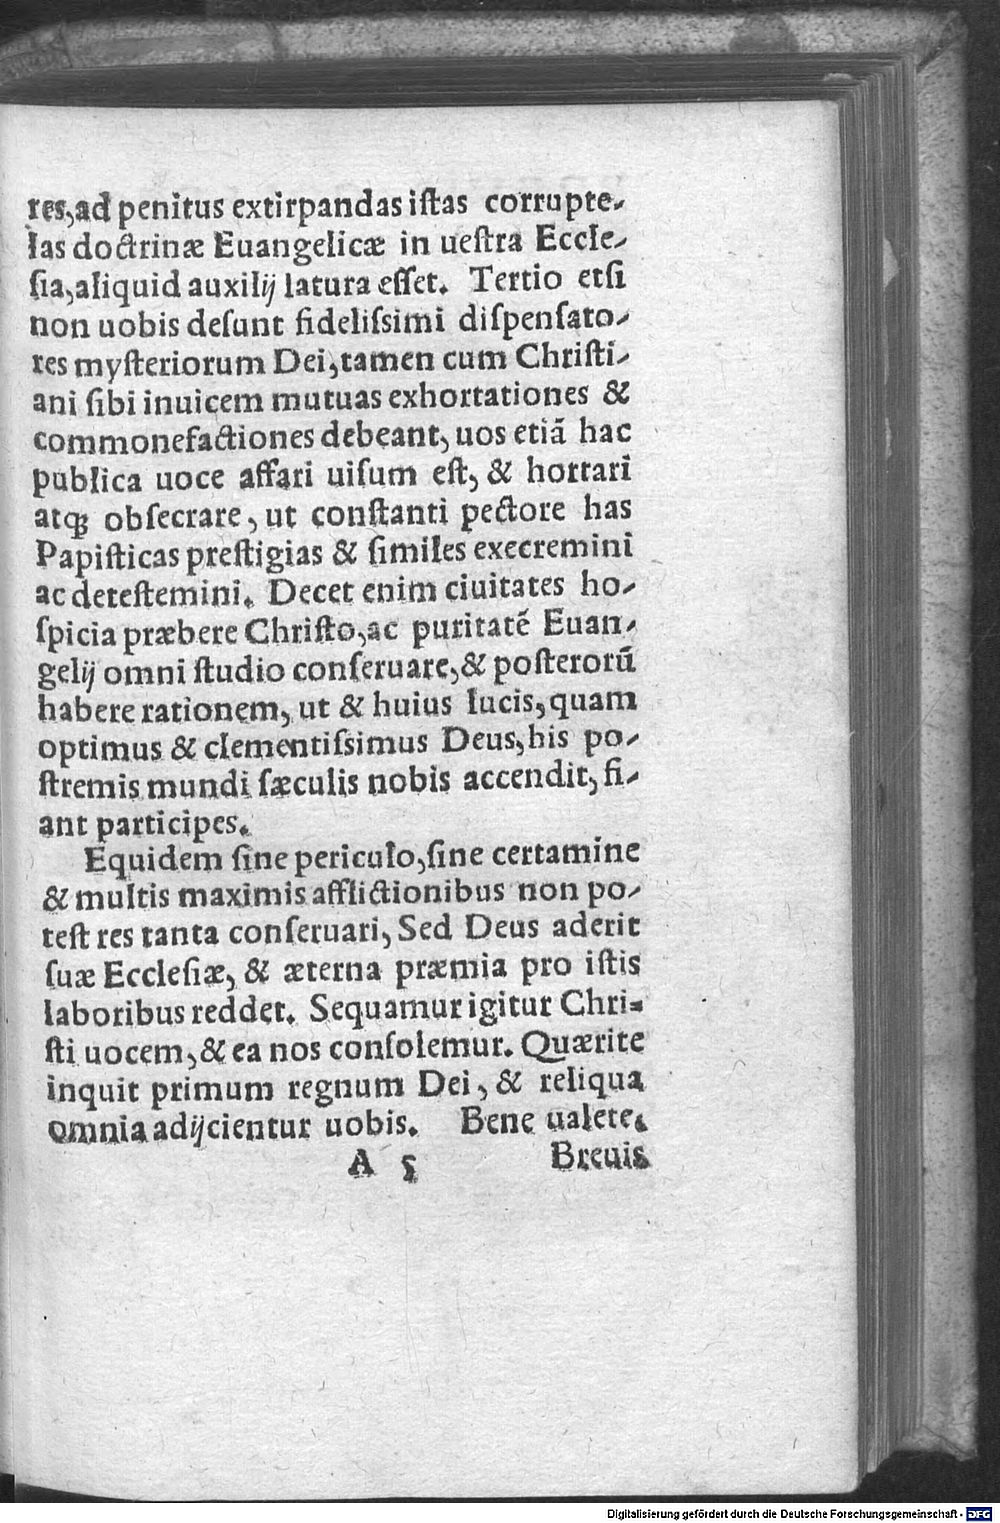 res, ad penitus extirpandas iſtas corrupte-
las doctrinæ Euangelicæ in ueſtra Eccle-
ſia, aliquid auxilij latura eſſet. Tertio etſi
non uobis deſunt fideliſsimi diſpenſato-
res myſteriorum Dei, tamen cum Chriſti-
ani ſibi inuicem mutuas exhortationes &
commonefactiones debeant, uos etiā hac
publica uoce affari uiſum eſt, & hortari
atqꝫ obſecrare, ut conſtanti pectore has
Papiſticas preſtigias & ſimiles execremini
ac deteſtemini. Decet enim ciuitates ho-
ſpicia præbere Chriſto, ac puritatẽ Euan-
gelij omni ſtudio conſeruare, & poſterorũ
habere rationem, ut & huius lucis, quam
optimus & clementiſsimus Deus, his po-
ſtremis mundi ſæculis nobis accendit, fi-
ant participes.
Equidem ſine periculo, ſine certamine
& multis maximis afflictionibus non po-
teſt res tanta conſeruari, Sed Deus aderit
ſuæ Eccleſiæ, & æterna præmia pro iſtis
laboribus reddet. Sequamur igitur Chri-
ſti uocem, & ea nos conſolemur. Quærite
inquit primum regnum Dei, & reliqua
omnia adijcientur uobis. Bene ualete.
A 5 Breuis
Digitalisierung gefördert durch die Deutsche Forschungsgemeinschaft - DFG